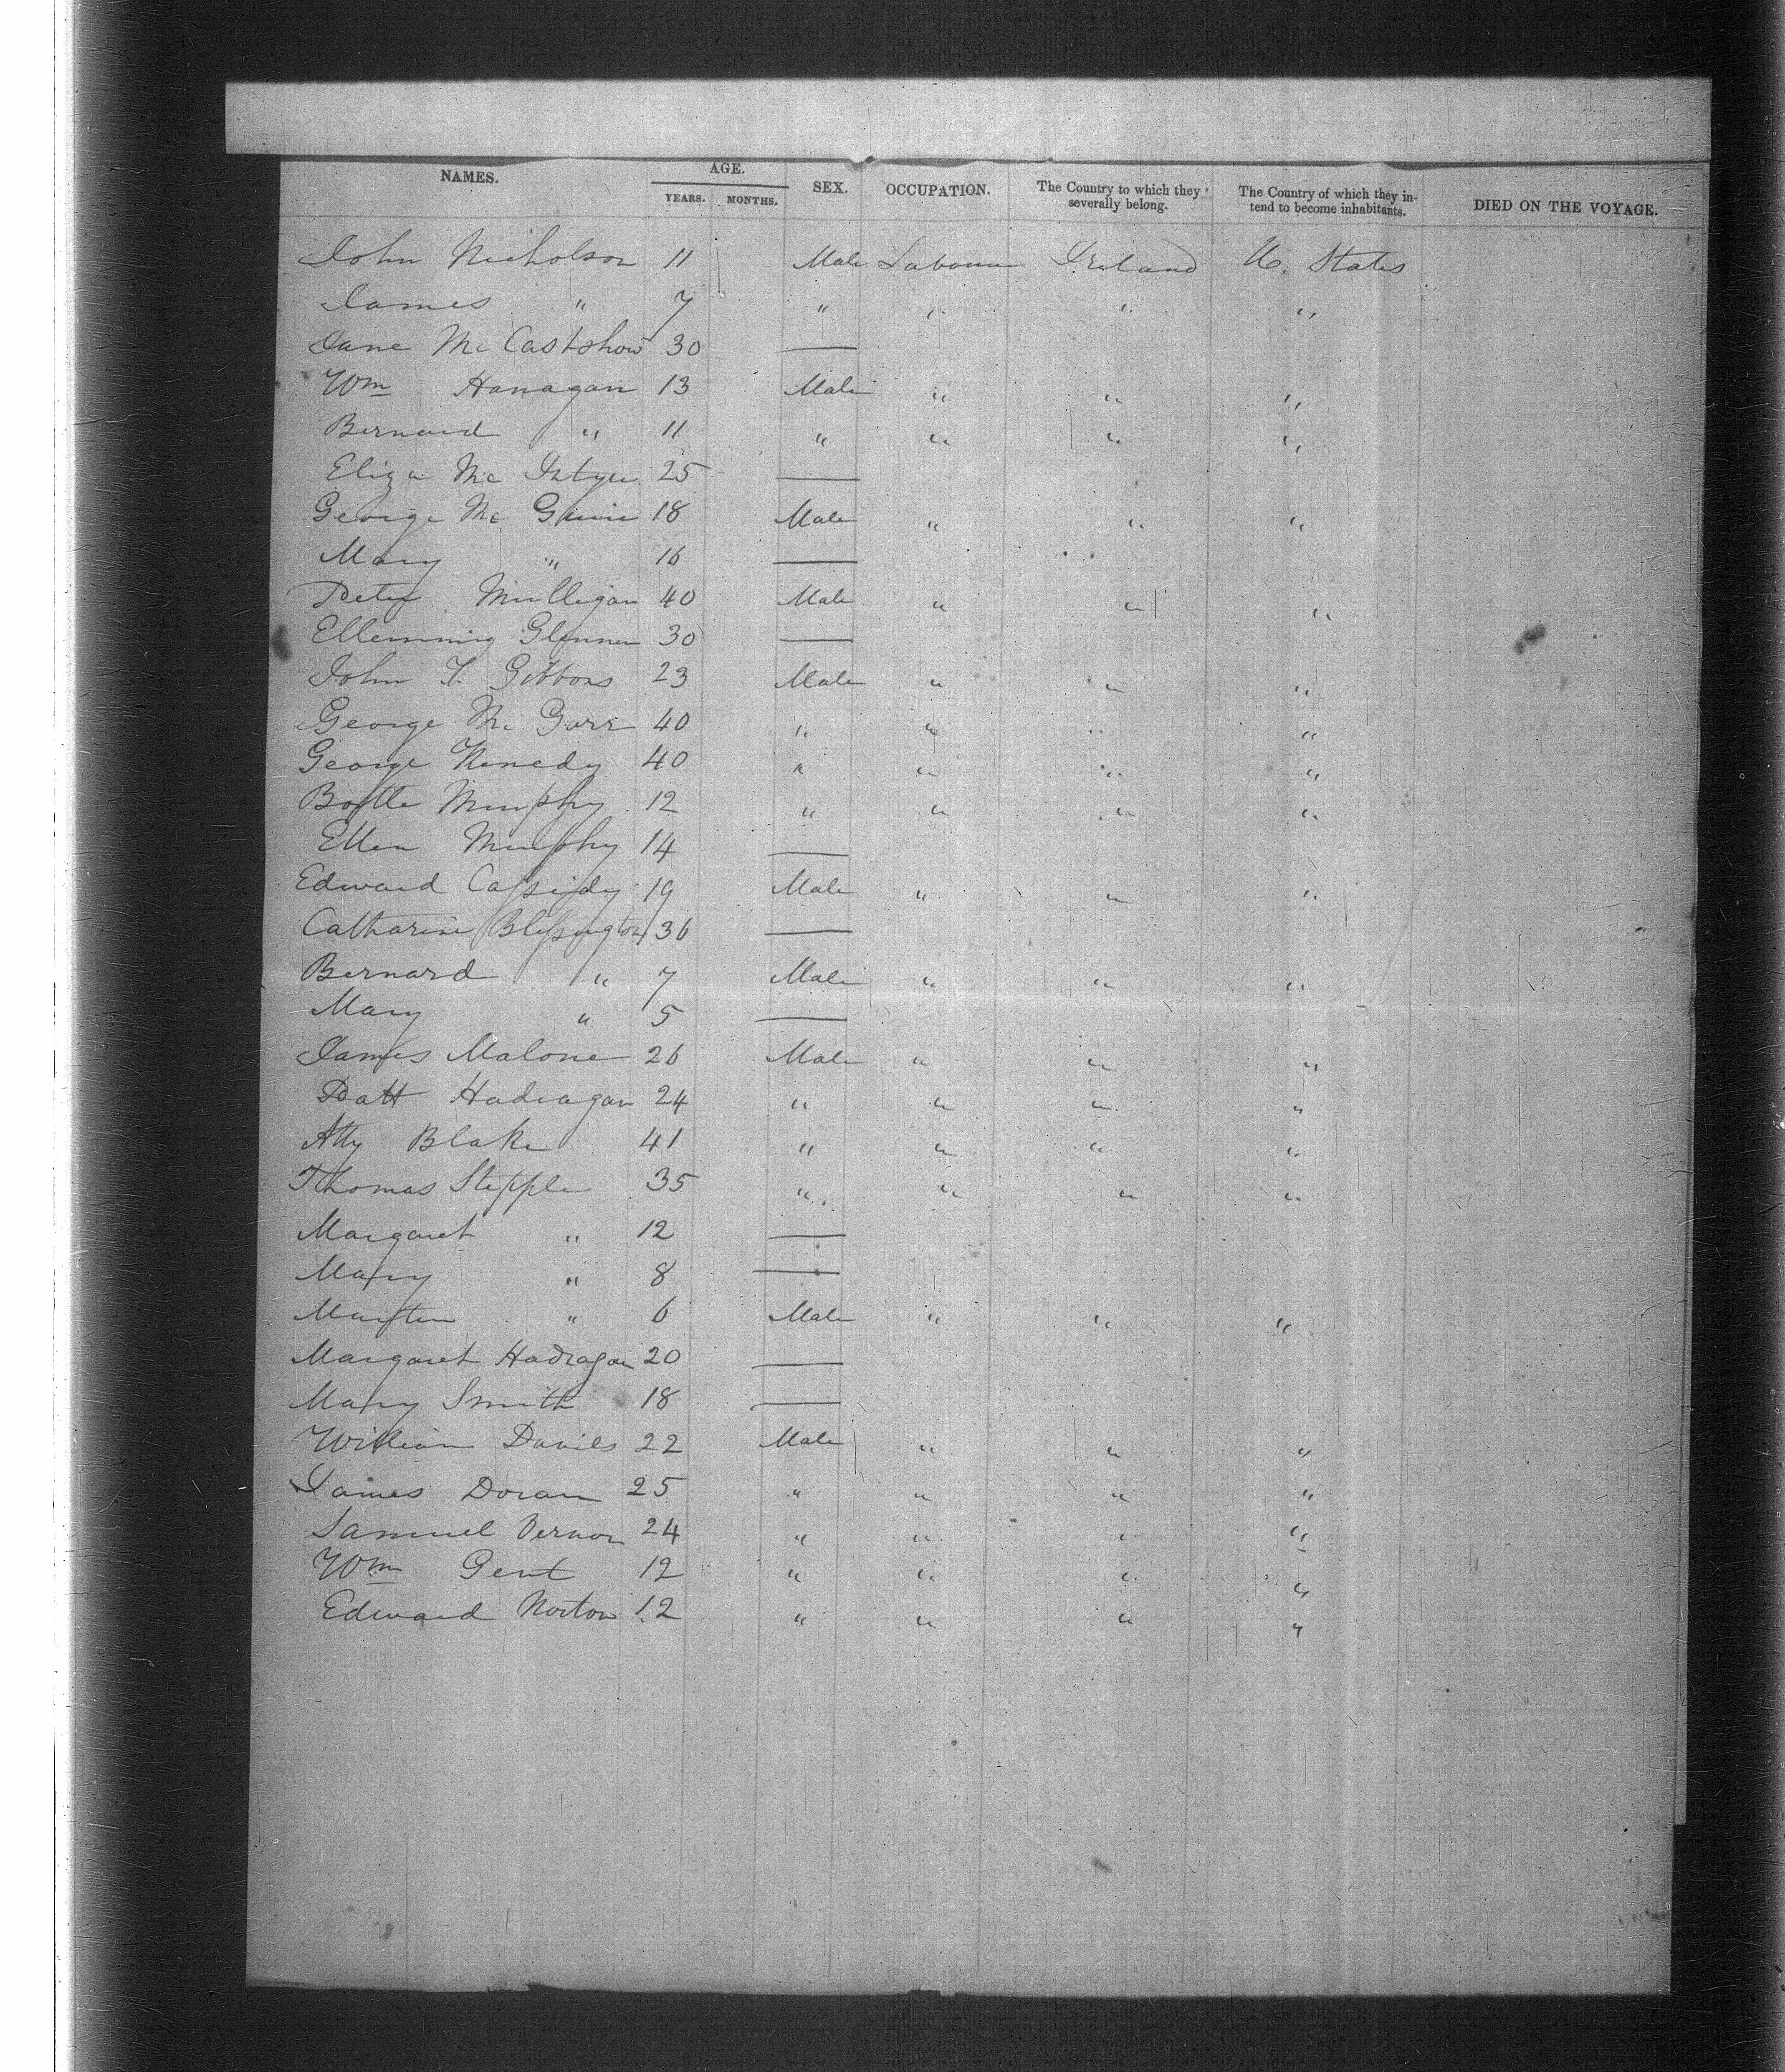 NAMES. AGE. SEX. OCCUPATION. The Country to which they severally belong. The Country of which they intend to become inhabitants. DIED ON THE VOYAGE.
YEARS. MONTHS.
John Nicholson 11 Male Labourer Ireland U. States
James " 7 " " " "
Jane Mc 30 —
Wm Hanagan 13 Male " " "
Bernard " 11 " " " "
Eliza Mc Intyre 25 —
George Mc 18 Male " " "
Mary " 16 —
Peter Mulligan 40 Male " " "
30 —
John T. Gibbons 23 Male " " "
George Mc Garr 40 " " " "
George Kenedy 40 " " " "
Murphy 12 " " " "
Ellen Murphy 14 —
Edward Cassidy 19 Male " " "
Catharine Blessington 36 —
Bernard " 7 Male " " "
Mary " 5 —
James Malone 26 Male " " "
Patt Hadragan 24 " " " "
Atty Blake 41 " " " "
Thomas Stepple 35 " " " "
Margaret " 12 —
Mary " 8 —
Martin " 6 Male " " "
Margaret Hadragan 20 —
Mary Smith 18 —
William Davies 22 Male " " "
James Doran 25 " " " "
Samuel Vernon 24 " " " "
Wm Gent 12 " " " "
Edward Norton 12 " " " "